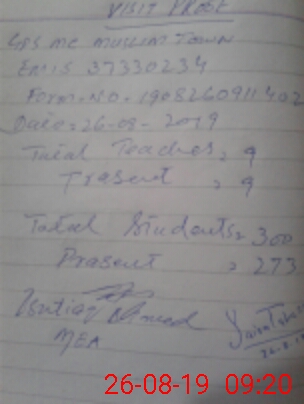 VISIT PROSE
GPS MC MUSLIM TOWN
EMIS 37330234
Form-NO. 1908260911402
Date: 26-08-2019
Total Teaches = 9
Present = 9
Total Students = 300
Prasent = 273
Ishtiaq Ahmad
MEA
26-08-19 09:20